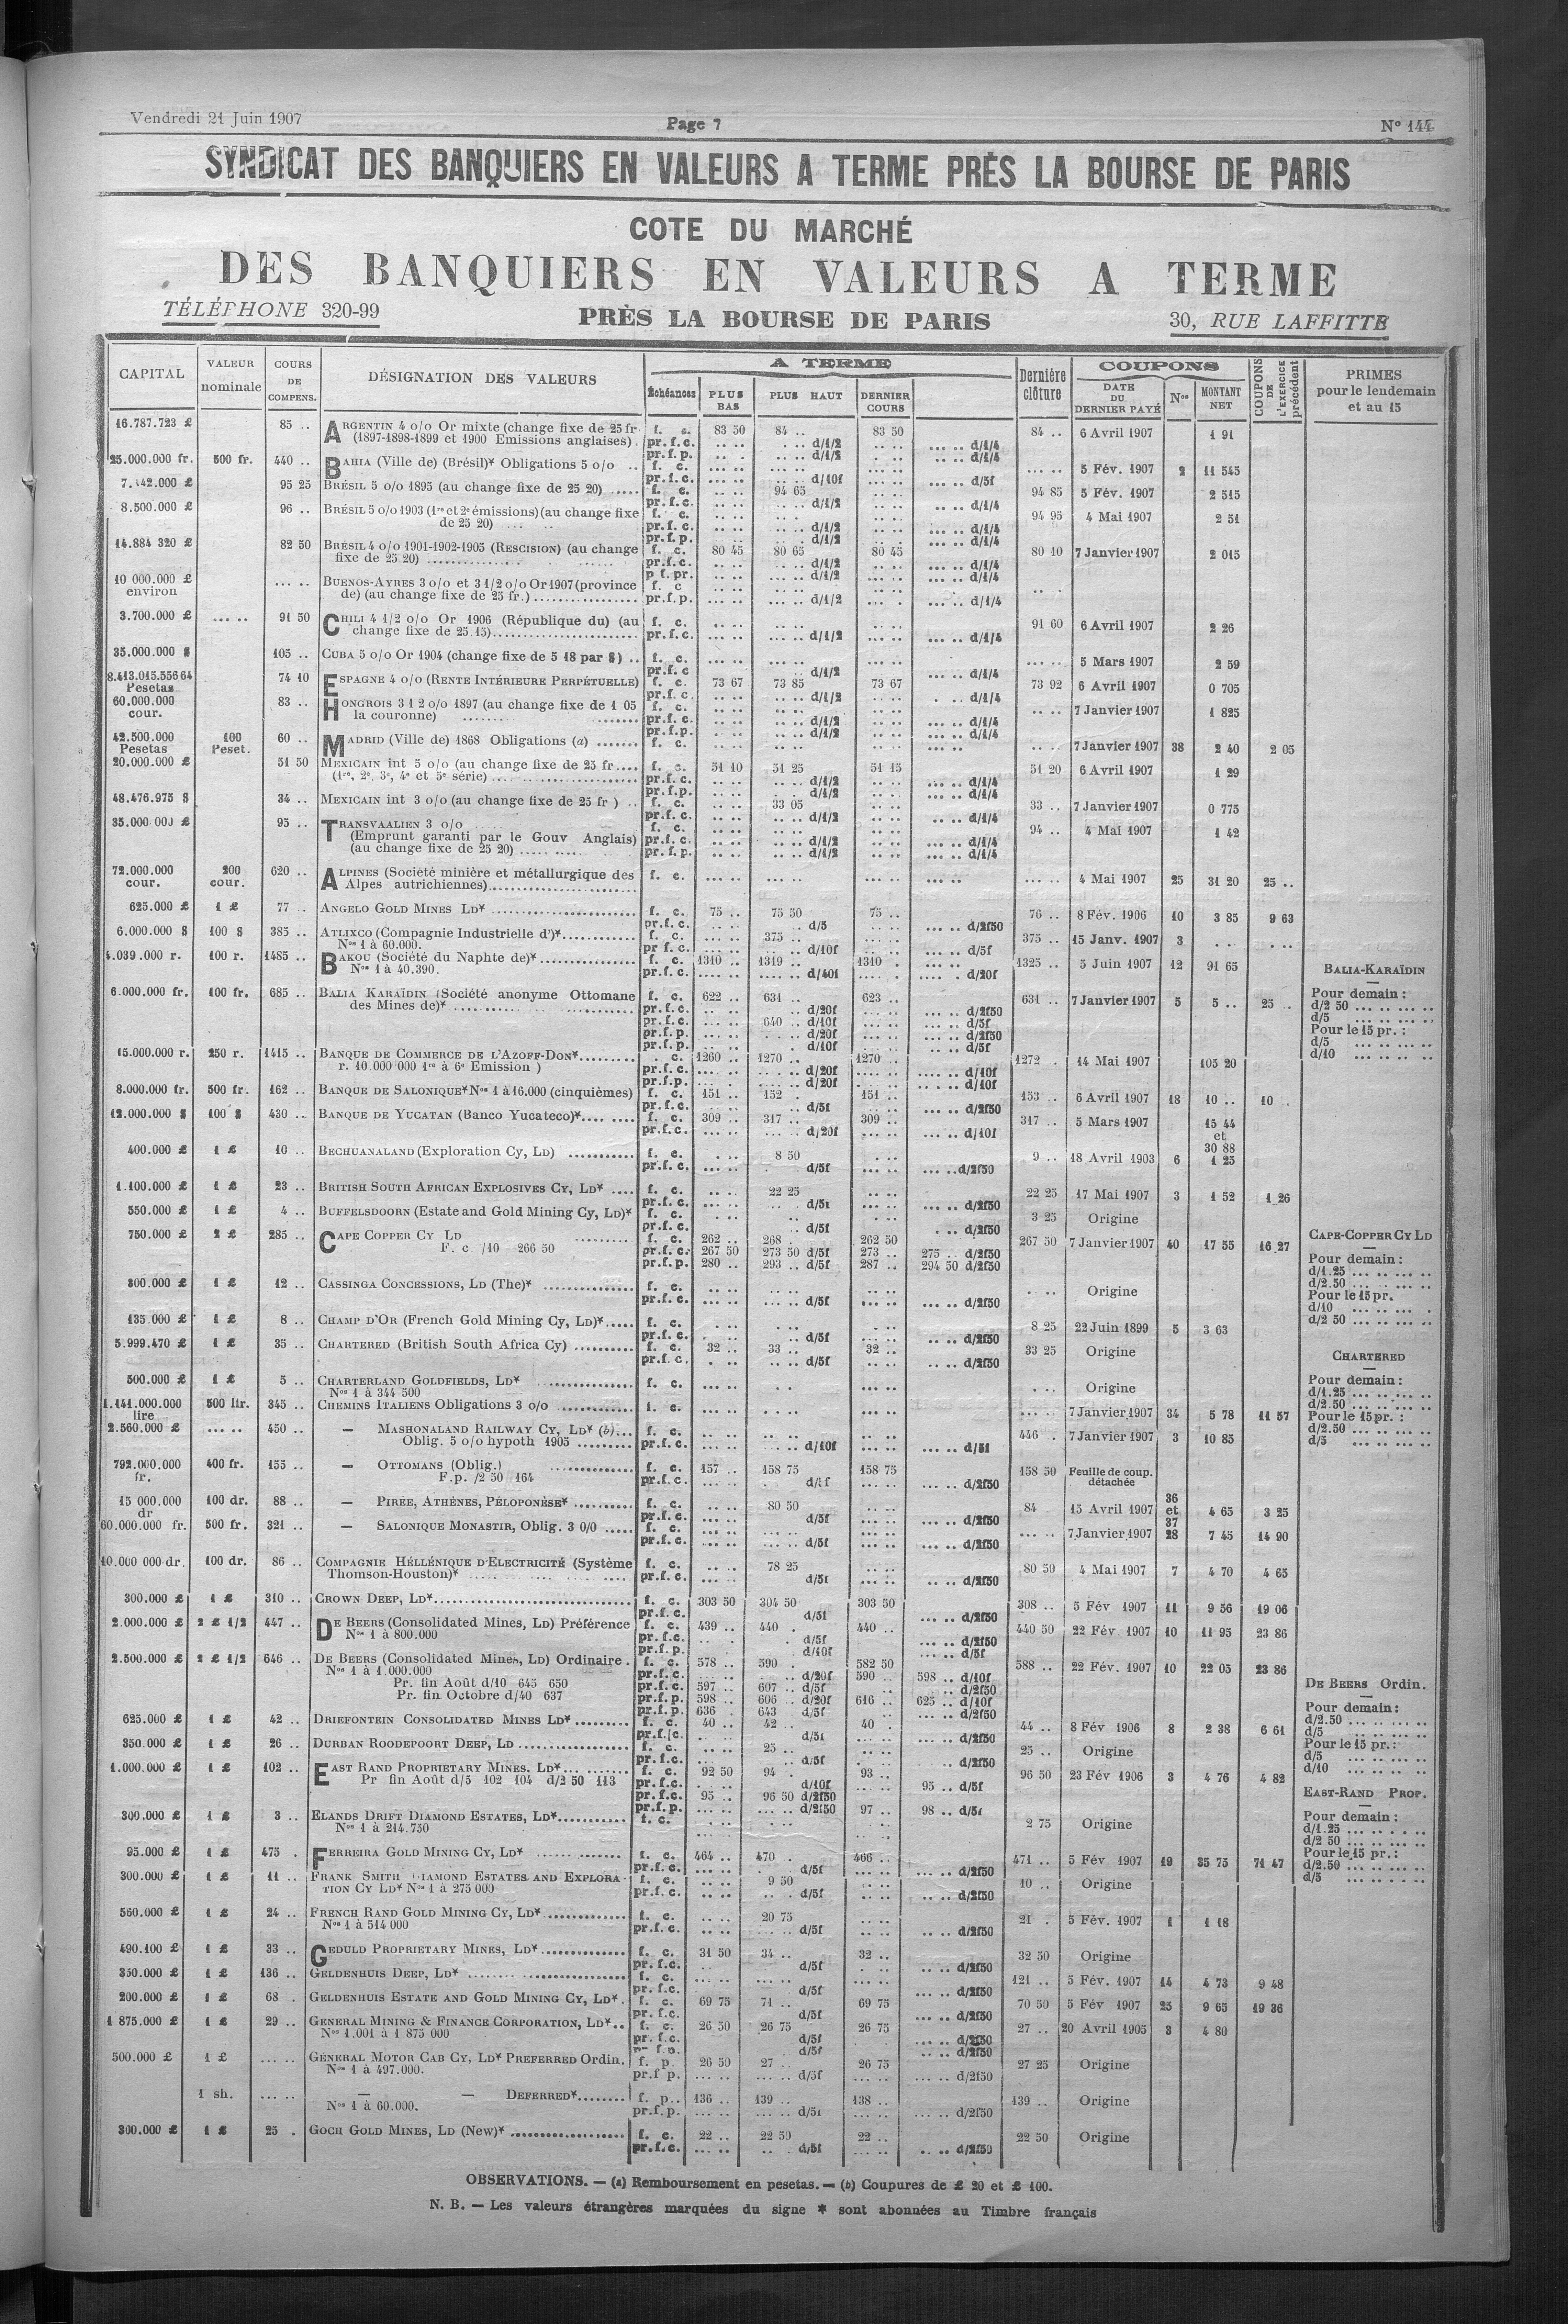 Vendredi 21 Juin 1907 Page 7 N° 144
SYNDICAT DES BANQUIERS EN VALEURS A TERME PRÈS LA BOURSE DE PARIS
COTE DU MARCHÉ
DES BANQUIERS EN VALEURS A TERME
TÉLÉPHONE 320-99 PRÈS LA BOURSE DE PARIS 30, RUE LAFFITTE
CAPITAL VALEUR nominale COURS DE COMPENS. DÉSIGNATION DES VALEURS A TERME Échéances PLUS BAS PLUS HAUT DERNIER COURS Dernière clôture COUPONS DATE DU DERNIER PAYÉ Nos MONTANT NET COUPONS DE L'EXERCICE précédent PRIMES pour le lendemain et au 15
16.787.723 £ 85 .. ARGENTIN 4 o/o Or mixte (change fixe de 25 fr f. c. 83 50 84 .. 83 50 84 .. 6 Avril 1907 1 91
(1897-1898-1899 et 1900 Emissions anglaises). pr. f. c. d/1/2 d/1/4
pr. f. p. d/1/2 d/1/4
25.000.000 fr. 500 fr. 440 .. BAHIA (Ville de) (Brésil)* Obligations 5 o/o .. f. c. 5 Fév. 1907 2 11 545
pr. f. c. d/10f d/5f
95 25 BRÉSIL 5 o/o 1895 (au change fixe de 25 20) ..... f. c. 94 65 94 85 5 Fév. 1907 2 515
pr. f. c. d/1/2 d/1/4
8.500.000 £ 96 .. BRÉSIL 5 o/o 1903 (1re et 2e émissions)(au change fixe f. c. 94 95 4 Mai 1907 2 51
de 25 20) pr. f. c. d/1/2 d/1/4
pr. f. p. d/1/2 d/1/4
14.884 320 £ 82 50 BRÉSIL 4 o/o 1901-1902-1905 (RESCISION) (au change f. c. 80 45 80 65 80 45 80 10 7 Janvier 1907 2 015
fixe de 25 20) pr. f. c. d/1/2 d/1/4
p f. pr. d/1/2 d/1/4
10 000.000 £ environ BUENOS-AYRES 3 o/o et 3 1/2 o/o Or 1907 (province f. c
de) (au change fixe de 25 fr.) pr. f. p. d/1/2 d/1/4
3.700.000 £ 91 50 CHILI 4 1/2 o/o Or 1906 (République du) (au f. c. 91 60 6 Avril 1907 2 26
change fixe de 25.15) pr. f. c. d/1/2 d/1/4
35.000.000 $ 105 .. CUBA 5 o/o Or 1904 (change fixe de 5 18 par $) .. f. c. 5 Mars 1907 2 59
pr. f. c d/1/2 d/1/4
8.413.015.556 64 Pesetas 74 10 ESPAGNE 4 o/o (RENTE INTÉRIEURE PERPÉTUELLE) f. c. 73 67 73 85 73 67 73 92 6 Avril 1907 0 705
pr. f. c. d/1/2 d/1/4
60.000.000 cour. 83 .. HONGROIS 3 1 2 o/o 1897 (au change fixe de 1 05 f. c. 7 Janvier 1907 1 825
la couronne) pr. f. c. d/1/2 d/1/4
pr. f. p. d/1/2 d/1/4
42.500.000 Pesetas 100 Peset. 60 .. MADRID (Ville de) 1868 Obligations (a) ....... f. c. 7 Janvier 1907 38 2 40 2 05
20.000.000 £ 51 50 MEXICAIN int 5 o/o (au change fixe de 25 fr.... f. c. 51 10 51 25 51 15 51 20 6 Avril 1907 1 29
(1re, 2e, 3e, 4e et 5e série) pr. f. c. d/1/2 d/1/4
pr. f. p. d/1/2 d/1/4
48.476.975 $ 34 .. MEXICAIN int 3 o/o (au change fixe de 25 fr ) .. f. c. 33 05 33 .. 7 Janvier 1907 0 775
pr. f. c. d/1/2 d/1/4
35.000 000 £ 95 .. TRANSVAALIEN 3 o/o f. c. 94 .. 4 Mai 1907 1 42
(Emprunt garanti par le Gouv Anglais) pr. f. c. d/1/2 d/1/4
(au change fixe de 25 20) pr. f. p. d/1/2 d/1/4
72.000.000 cour. 200 cour. 620 .. ALPINES (Société minière et métallurgique des f. c. 4 Mai 1907 25 31 20 25 ..
Alpes autrichiennes)
625.000 £ 1 £ 77 .. ANGELO GOLD MINES LD* f. c. 75 .. 75 50 75 .. 76 .. 8 Fév. 1906 10 3 85 9 63
pr. f. c. d/5 d/2f50
6.000.000 $ 100 $ 385 .. ATLIXCO (Compagnie Industrielle d')* f. c. 375 .. 375 .. 15 Janv. 1907 3
Nos 1 à 60.000. pr f. c. d/10f d/5f
4.039.000 r. 100 r. 1485 .. BAKOU (Société du Naphte de)* f. c. 1310 .. 1319 .. 1310 1325 .. 5 Juin 1907 12 91 65
Nos 1 à 40.390. pr. f. c. d/40f d/20f
6.000.000 fr. 100 fr. 685 .. BALIA KARAÏDIN (Société anonyme Ottomane f. c. 622 .. 631 .. 623 .. 631 .. 7 Janvier 1907 5 5 .. 25 ..
des Mines de)* pr. f. c. d/20f d/2f50
pr. f. c. 640 .. d/10f d/5f
pr. f. p. d/20f d/2f50
pr. f. p. d/10f d/5f
BALIA-KARAÏDIN
Pour demain :
d/2 50
d/5
Pour le 15 pr. :
d/5
d/10
15.000.000 r. 250 r. 1415 .. BANQUE DE COMMERCE DE L'AZOFF-DON* . c. 1260 .. 1270 .. 1270 1272 . 14 Mai 1907 105 20
r. 10 000 000 1re à 6e Emission ) pr. f. c. d/20f d/10f
pr. f. p. d/20f d/10f
8.000.000 fr. 500 fr. 162 .. BANQUE DE SALONIQUE* Nos 1 à 16.000 (cinquièmes) f. c. 151 .. 152 . 151 .. 153 .. 6 Avril 1907 18 10 .. 10 .
pr. f. c. d/5f d/2f50
12.000.000 $ 100 $ 430 .. BANQUE DE YUCATAN (Banco Yucateco)* f. c. 309 .. 317 .. 309 .. 317 .. 5 Mars 1907 15 44 et 30 88
pr. f. c. d/20f d/10f
400.000 £ 1 £ 10 .. BECHUANALAND (Exploration Cy, LD) f. c. 8 50 9 .. 18 Avril 1903 6 1 25
pr. f. c. d/5f d/2f50
1.100.000 £ 1 £ 23 .. BRITISH SOUTH AFRICAN EXPLOSIVES CY, LD* .... f. c. 22 25 22 25 17 Mai 1907 3 1 52 1 26
pr. f. c. d/5f d/2f50
550.000 £ 1 £ 4 .. BUFFELSDOORN (Estate and Gold Mining Cy, LD)* f. c. 3 25 Origine
pr. f. c. d/5f d/2f50
750.000 £ 2 £ 285 .. CAPE COPPER CY LD f. c. 262 .. 268 . 262 50 267 50 7 Janvier 1907 40 17 55 16 27
F. c. /10 266 50 pr. f. c. 267 50 273 50 d/5f 273 .. 275 .. d/2f50
pr. f. p. 280 .. 293 .. d/5f 287 .. 294 50 d/2f50
CAPE-COPPER CY LD
Pour demain :
d/1.25
d/2.50
Pour le 15 pr.
d/10
d/2 50
300.000 £ 1 £ 12 .. CASSINGA CONCESSIONS, LD (The)* f. c. Origine
pr. f. c. d/5f d/2f50
135.000 £ 1 £ 8 .. CHAMP D'OR (French Gold Mining Cy, LD)* f. c. 8 25 22 Juin 1899 5 3 63
pr. f. c. d/5f d/2f50
5.999.470 £ 1 £ 35 .. CHARTERED (British South Africa Cy) f. c. 32 .. 33 .. 32 .. 33 25 Origine
pr. f. c. d/5f d/2f50
CHARTERED
Pour demain :
d/1.25
d/2.50
Pour le 15 pr. :
d/2.50
d/5
500.000 £ 1 £ 5 .. CHARTERLAND GOLDFIELDS, LD* f. c. Origine
Nos 1 à 344 500
1.141.000.000 lire 500 lir. 345 .. CHEMINS ITALIENS Obligations 3 o/o f. c. 7 Janvier 1907 34 5 78 11 57
2.560.000 £ 450 .. — MASHONALAND RAILWAY CY, LD* (b) f. c. 446 . 7 Janvier 1907 3 10 85
Oblig. 5 o/o hypoth 1905 pr. f. c. d/10f d/5f
792.000.000 fr. 400 fr. 155 .. — OTTOMANS (Oblig.) f. c. 157 .. 158 75 158 75 158 50 Feuille de coup. détachée
F.p. /2 50 164 pr. f. c. d/2f50
15 000.000 dr 100 dr. 88 .. — PIRÉE, ATHÈNES, PÉLOPONÈSE* f. c. 80 50 84 15 Avril 1907 36 et 37 4 65 3 25
pr. f. c. d/5f d/2f50
60.000.000 fr. 500 fr. 321 .. — SALONIQUE MONASTIR, Oblig. 3 0/0 f. c. 7 Janvier 1907 28 7 45 14 90
pr. f. c. d/5f d/2f50
10.000 000 dr. 100 dr. 86 .. COMPAGNIE HÉLLÉNIQUE D'ELECTRICITÉ (Système f. c. 78 25 80 50 4 Mai 1907 7 4 70 4 65
Thomson-Houston)* pr. f. c. d/5f d/2f50
300.000 £ 1 £ 310 .. CROWN DEEP, LD* f. c. 303 50 304 50 303 50 308 .. 5 Fév 1907 11 9 56 19 06
pr. f. c. d/5f d/2f50
2.000.000 £ 2 £ 1/2 447 .. DE BEERS (Consolidated Mines, LD) Préférence f. c. 439 .. 440 . 440 .. 440 50 22 Fév. 1907 10 11 95 23 86
Nos 1 à 800.000 pr. f. c. d/5f d/2f50
pr. f. p. d/10f d/5f
2.500.000 £ 2 £ 1/2 646 .. DE BEERS (Consolidated Mines, LD) Ordinaire . f. c. 578 .. 590 . 582 50 588 .. 22 Fév. 1907 10 22 05 23 86
Nos 1 à 1.000.000 pr. f. c. d/20f 590 .. 598 .. d/10f
Pr. fin Août d/10 645 650 pr. f. c. 597 .. 607 .. d/5f d/2f50
Pr. fin Octobre d/40 637 pr. f. p. 598 .. 606 .. d/20f 616 .. 625 .. d/10f
pr. f. p. 636 . 643 d/5f d/2f50
DE BEERS Ordin.
Pour demain :
d/2.50
d/5
Pour le 15 pr. :
d/5
d/10
625.000 £ 1 £ 42 .. DRIEFONTEIN CONSOLIDATED MINES LD* f. c. 40 .. 42 .. 40 . 44 .. 8 Fév 1906 8 2 38 6 61
pr. f. c. d/5f d/2f50
350.000 £ 1 £ 26 .. DURBAN ROODEPOORT DEEP, LD f. c. 25 .. 25 .. Origine
pr. f. c. d/5f d/2f50
1.000.000 £ 1 £ 102 .. EAST RAND PROPRIETARY MINES, LD* f. c. 92 50 94 . 93 .. 96 50 23 Fév 1906 3 4 76 4 82
Pr fin Août d/5 102 104 d/2 50 113 pr. f. c. d/10f 95 .. d/5f
pr. f. c. 95 .. 96 50 d/2f50
pr. f. p. d/2f50 97 .. 98 .. d/5f
EAST-RAND PROP.
Pour demain :
d/1.25
d/2 50
Pour le 15 pr. :
d/2.50
d/5
300.000 £ 1 £ 3 .. ELANDS DRIFT DIAMOND ESTATES, LD* f. c. 2 75 Origine
Nos 1 à 214.750
95.000 £ 1 £ 475 . FERREIRA GOLD MINING CY, LD* f. c. 464 .. 470 . 466 .. 471 .. 5 Fév 1907 19 35 75 71 47
pr. f. c. d/5f d/2f50
300.000 £ 1 £ 11 .. FRANK SMITH DIAMOND ESTATES AND EXPLORA- f. c. 9 50 10 .. Origine
TION CY LD* Nos 1 à 275 000 pr. f. c. d/5f d/2f50
560.000 £ 1 £ 24 .. FRENCH RAND GOLD MINING CY, LD* f. c. 20 75 21 . 5 Fév. 1907 1 1 18
Nos 1 à 514 000 pr. f. c. d/5f d/2f50
490.100 £ 1 £ 33 .. GEDULD PROPRIETARY MINES, LD* f. c. 31 50 34 .. 32 .. 32 50 Origine
pr. f. c. d/5f d/2f50
350.000 £ 1 £ 136 .. GELDENHUIS DEEP, LD* f. c. 121 .. 5 Fév. 1907 14 4 73 9 48
pr. f. c. d/5f d/2f50
200.000 £ 1 £ 68 . GELDENHUIS ESTATE AND GOLD MINING CY, LD* . f. c. 69 75 71 .. 69 75 70 50 5 Fév 1907 25 9 65 19 36
pr. f. c. d/5f d/2f50
1 875.000 £ 1 £ 29 .. GENERAL MINING & FINANCE CORPORATION, LD* .. f. c. 26 50 26 75 26 75 27 .. 20 Avril 1905 3 4 80
Nos 1.001 à 1 875 000 pr. f. c. d/5f d/2f50
d/5f d/2f50
500.000 £ 1 £ GENERAL MOTOR CAB CY, LD* PREFERRED Ordin. f. p. 26 50 27 . 26 75 27 25 Origine
Nos 1 à 497.000. pr. f p. d/5f d/2f50
1 sh. — — DEFERRED* f. p. 136 .. 139 .. 138 .. 139 .. Origine
Nos 1 à 60.000. pr. f. p. d/5f d/2f50
300.000 £ 1 £ 25 . GOCH GOLD MINES, LD (New)* f. c. 22 .. 22 50 22 .. 22 50 Origine
pr. f. c. d/5f d/2f50
OBSERVATIONS. — (a) Remboursement en pesetas. — (b) Coupures de £ 20 et £ 100.
N. B. — Les valeurs étrangères marquées du signe * sont abonnées au Timbre français